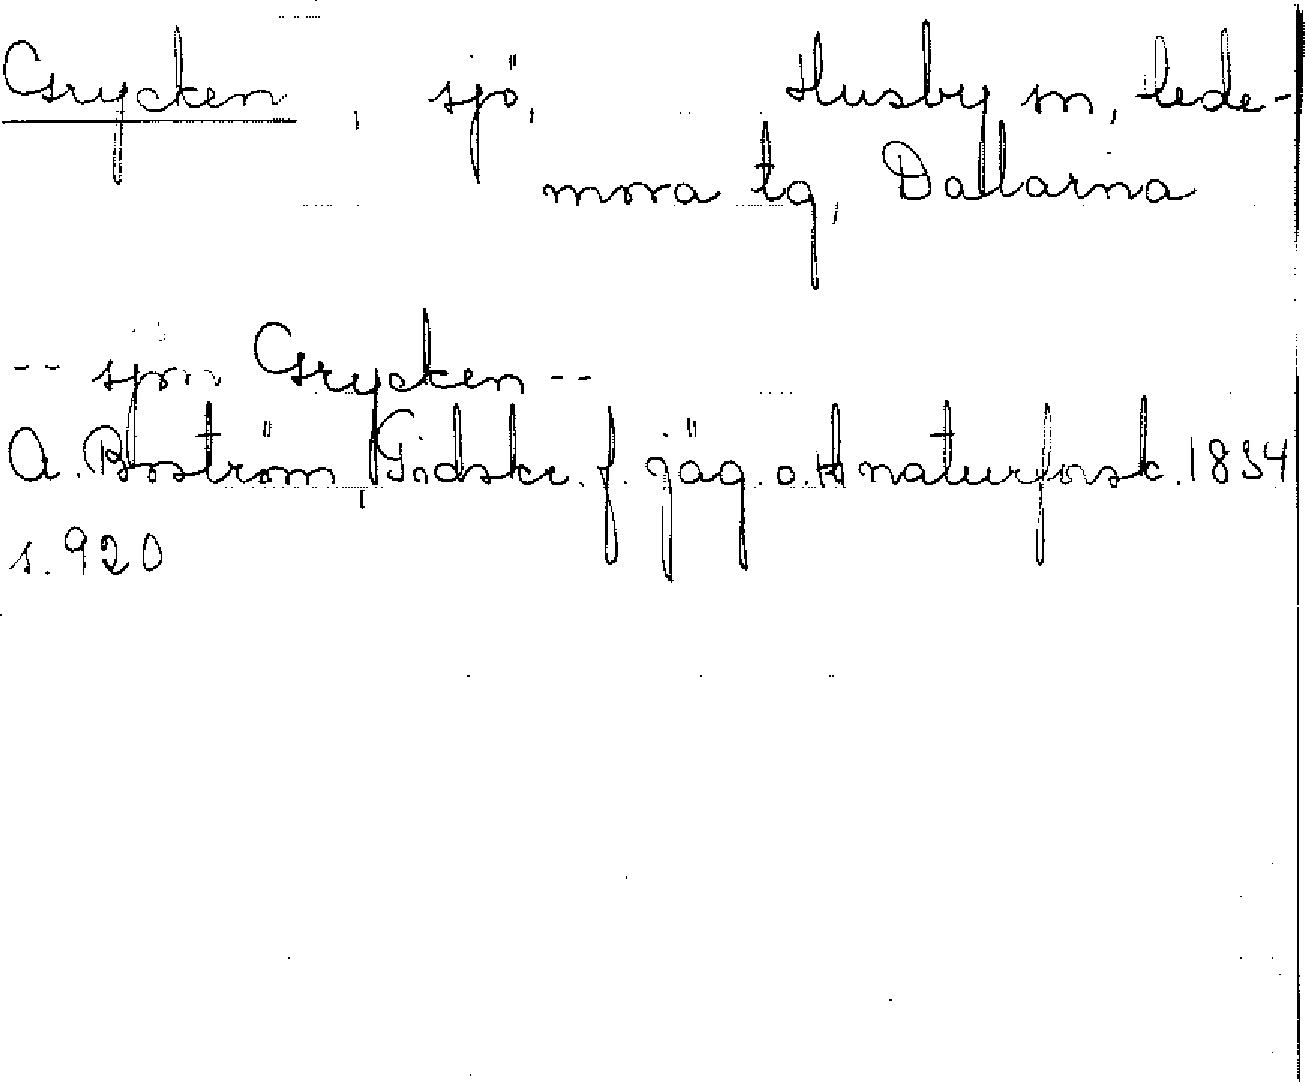 Grycken, sjö, Husby sn, Hede-
mora tg, Dalarna
-- sjön Grycken --
A. Boström, Tidskr. f. jäg. o. naturforsk. 1834
s. 920